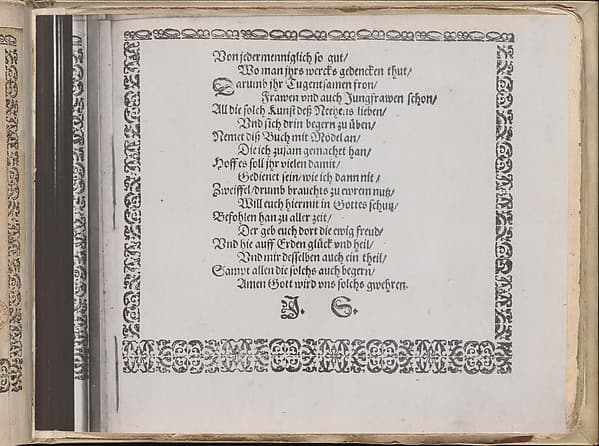 Von jedermenniglich so gut/
Wo man jhrs wercks gedencken thut/
Darumb jhr Tugentsamen fron/
Frawen vnd auch Jungfrawen schon/
All die solch Kunst deß Nehens lieben/
Vnd sich drin begern zu üben/
Nemet diß Buch mit Model an/
Die ich zusam gemachet han/
Hoff es soll jhr vielen damit/
Gedienet sein/wie ich dann nit/
Zweiffel/drumb brauchts zu ewrem nutz/
Will euch hiermit in Gottes schutz/
Befohlen han zu aller zeit/
Der geb euch dort die ewig freud/
Vnd hie auff Erden glück vnd heil/
Vnd mir desselben auch ein theil/
Sampt allen die solchs auch begern/
Amen Gott wird vns solchs gwehren.
J. S.